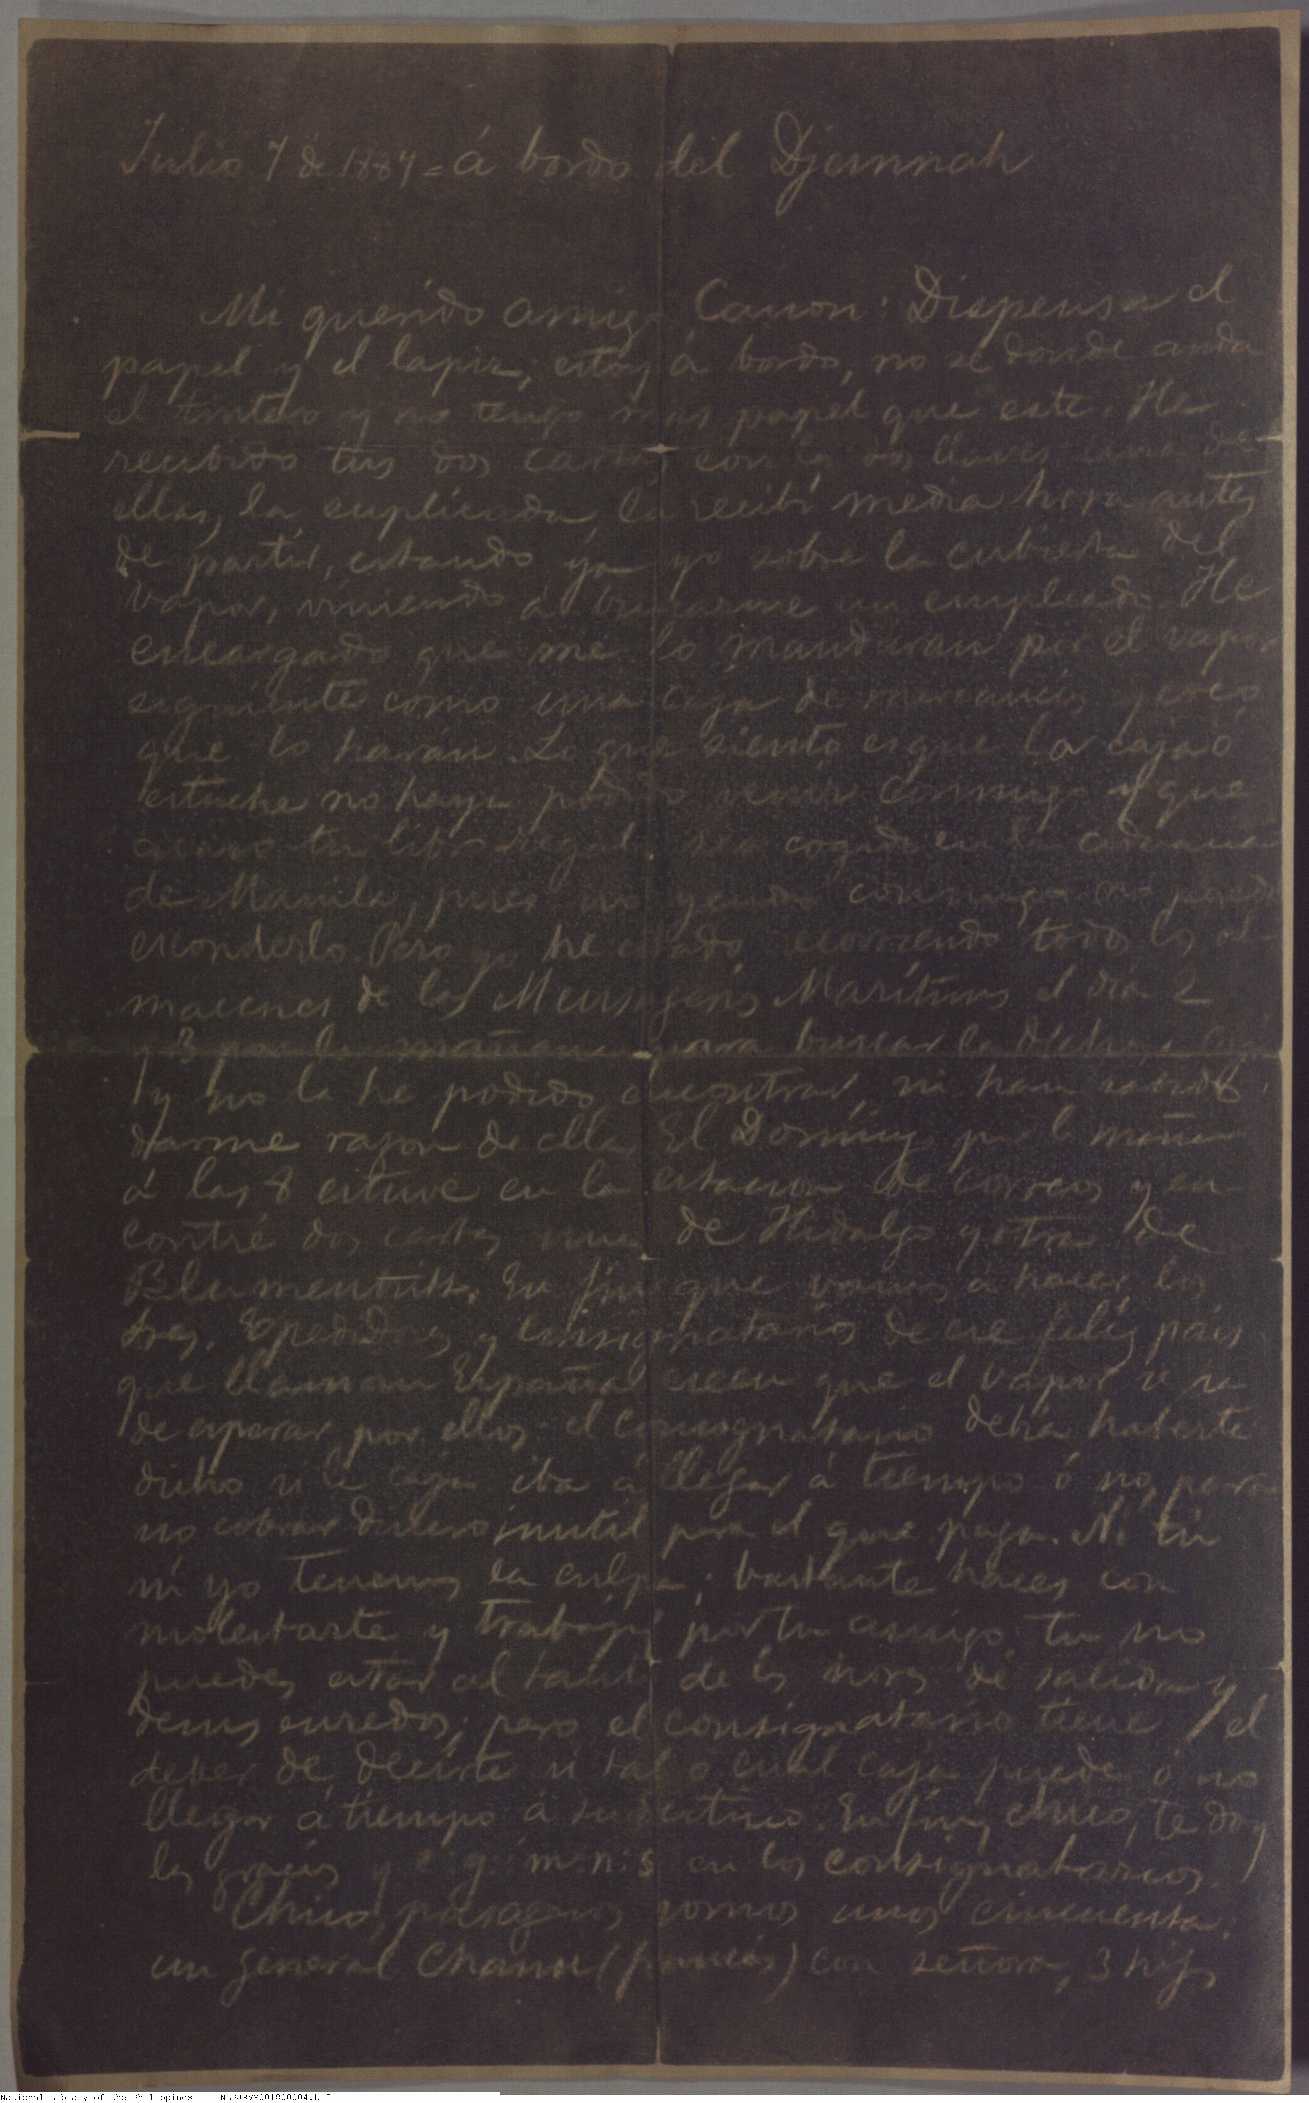 Julio 7 de 1887 = á bordo del Djemnah
Mi querido amigo Canon: Dispensa el
papel y el lapiz; estoy á bordo, no se donde anda
el tintero y no tengo mas papel que este. He
recibido tus dos cartas con las dos llaves una de
ellas, la duplicada, la recibí media hora antes
de partir, estando ya yo sobre la cubierta del
vapor, viniendo á buscarme un empleado. He
encargado que me lo mandaran por el vapor
siguiente como una caja de mercancias y creo
que lo harán. Lo que siento es que la caja ó
estuche no haya podido venir conmigo y que
acaso tu regalo sea cogido en la aduana
de Manila, pues no yendo conmigo no puedo
esconderlo. Pero yo he estado recorriendo todos los al-
macenes de las Mensagerís Marítimas el día 2
y 3 por la mañana para buscar la dicha caja
y no la he podido encontrar, ni han sabido
darme razon de ella. El Domingo por la mañana
á las 8 estuve en la estacion de correos y en-
contré dos cartas una de Hidalgo y otra de
Blumentritt. En fin que vamos á hacer los
tres. Expedidores y consignatarios de ese feliz páis
que llaman España creen que el vapor se ha
de esperar por ellos: el consignatario debía haberte
dicho si la caja iba á llegar á tiempo ó no, para
no cobrar dinero inutil para el que paga. Ni tú
ni yo tenemos la culpa; bastante haces con
molestarte y trabajar por tu amigo: tu no
puedes estar al tanto de las horas de salida y
demas enredos; pero el consignatario tiene el
deber de decirte si tal ó cual caja puede ó no
llegar á tiempo á su destino. En fin, chico, te doy
las gracias y en los consignatarios.
Chico, pasageros somos unos cincuenta:
un general Chanou (francés) con señora, 3 hijos